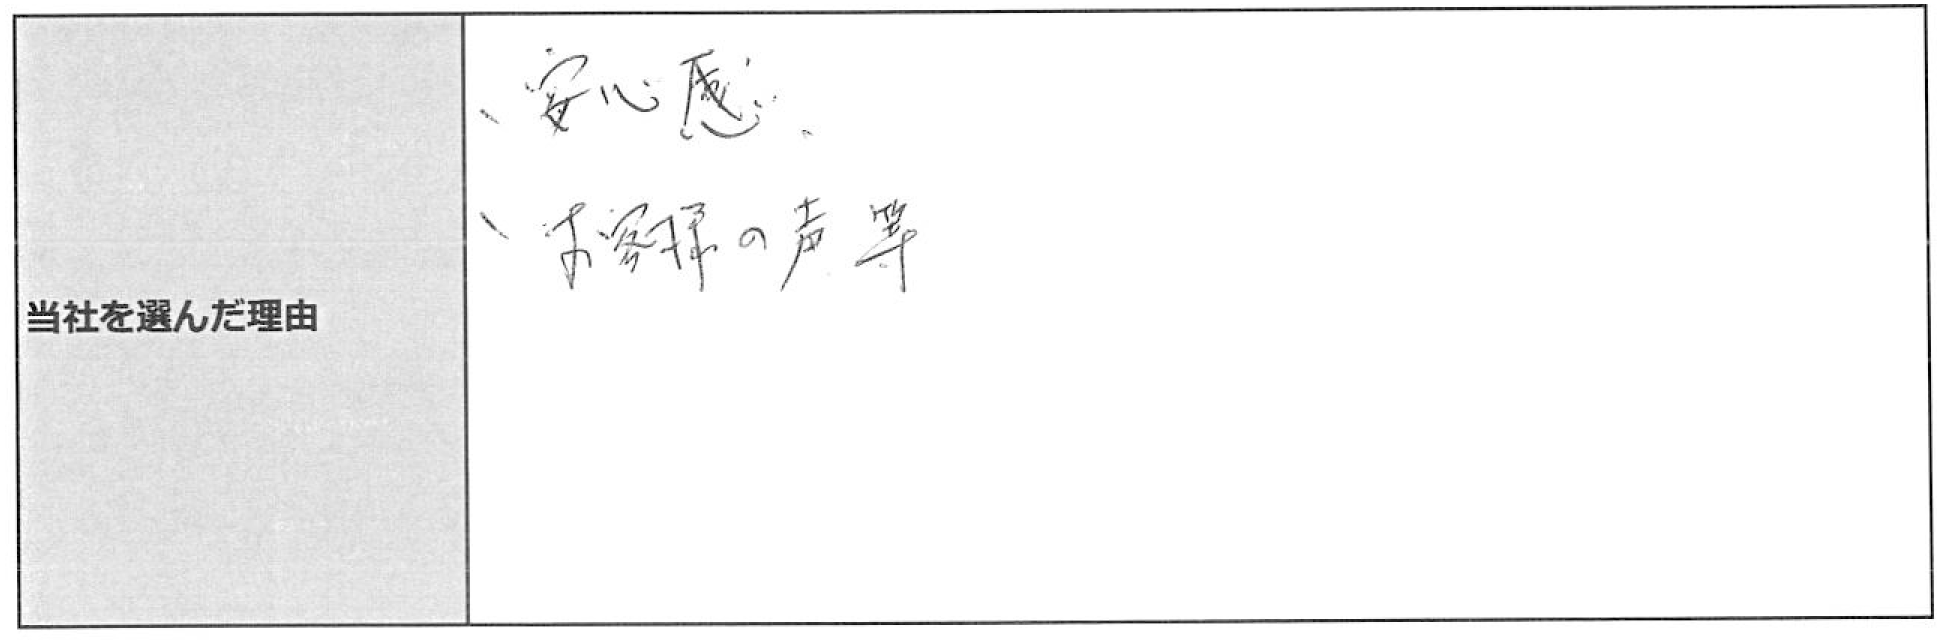 当社を選んだ理由
、安心感、
、お客様の声等